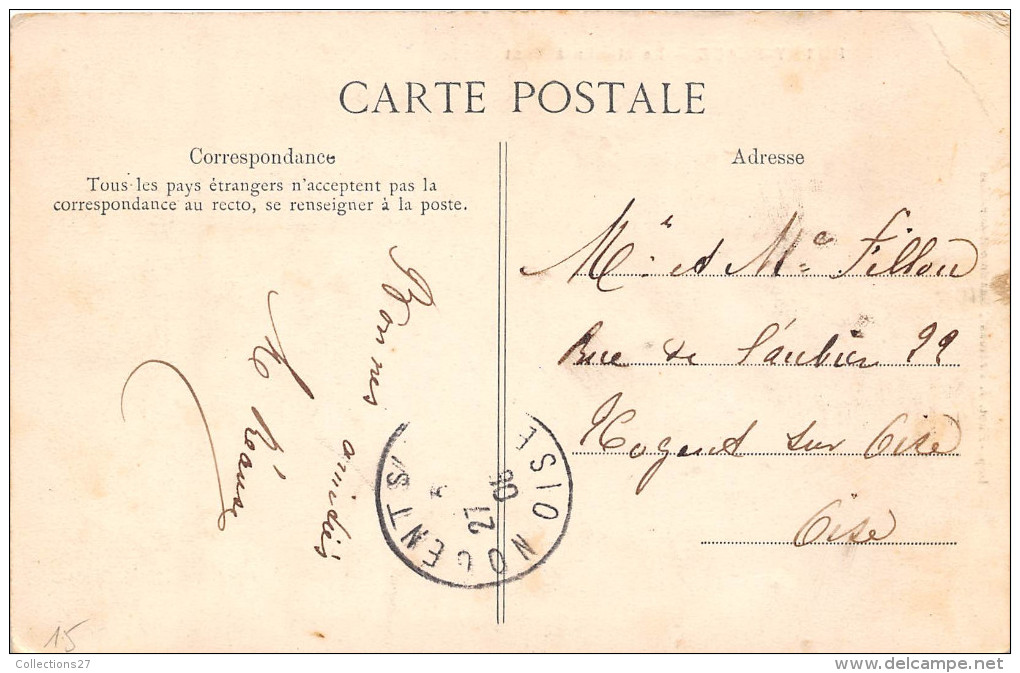 CARTE POSTALE
Correspondance
Tous les pays étrangers n'acceptent pas la
correspondance au recto, se renseigner à la poste.
Bonnes
amitiés
Adresse
Mr et Me Fillou
Rue de 22
Nogent sur Oise
Oise
NOGENT S OISE
21
06
15
Collections27
www.delcampe.net